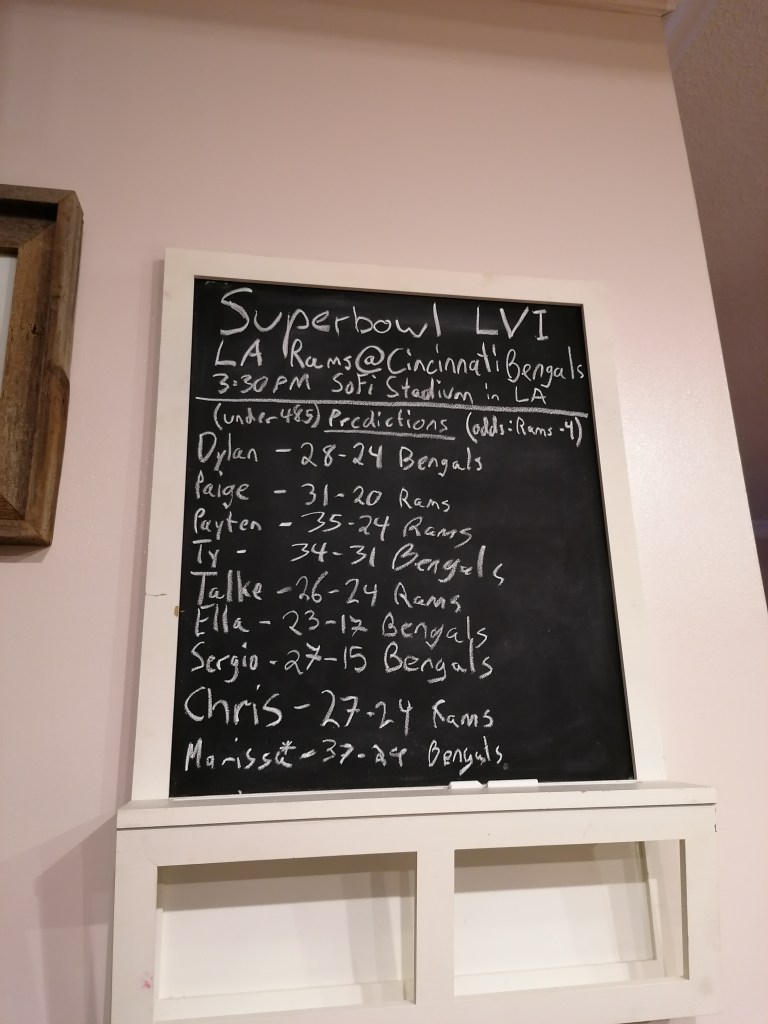 Superbowl LVI
LA Rams@Cincinnati Bengals
3:30 PM SoFi Stadium in LA
(under 48.5) Predictions (odds: Rams -4)
Dylan - 28-24 Bengals
Paige - 31-20 Rams
Payten - 35-24 Rams
Ty - 34-31 Bengals
Talke - 26-24 Rams
Ella - 23-17 Bengals
Sergio - 27-15 Bengals
Chris - 27-24 Rams
Marissa* - 37-24 Bengals